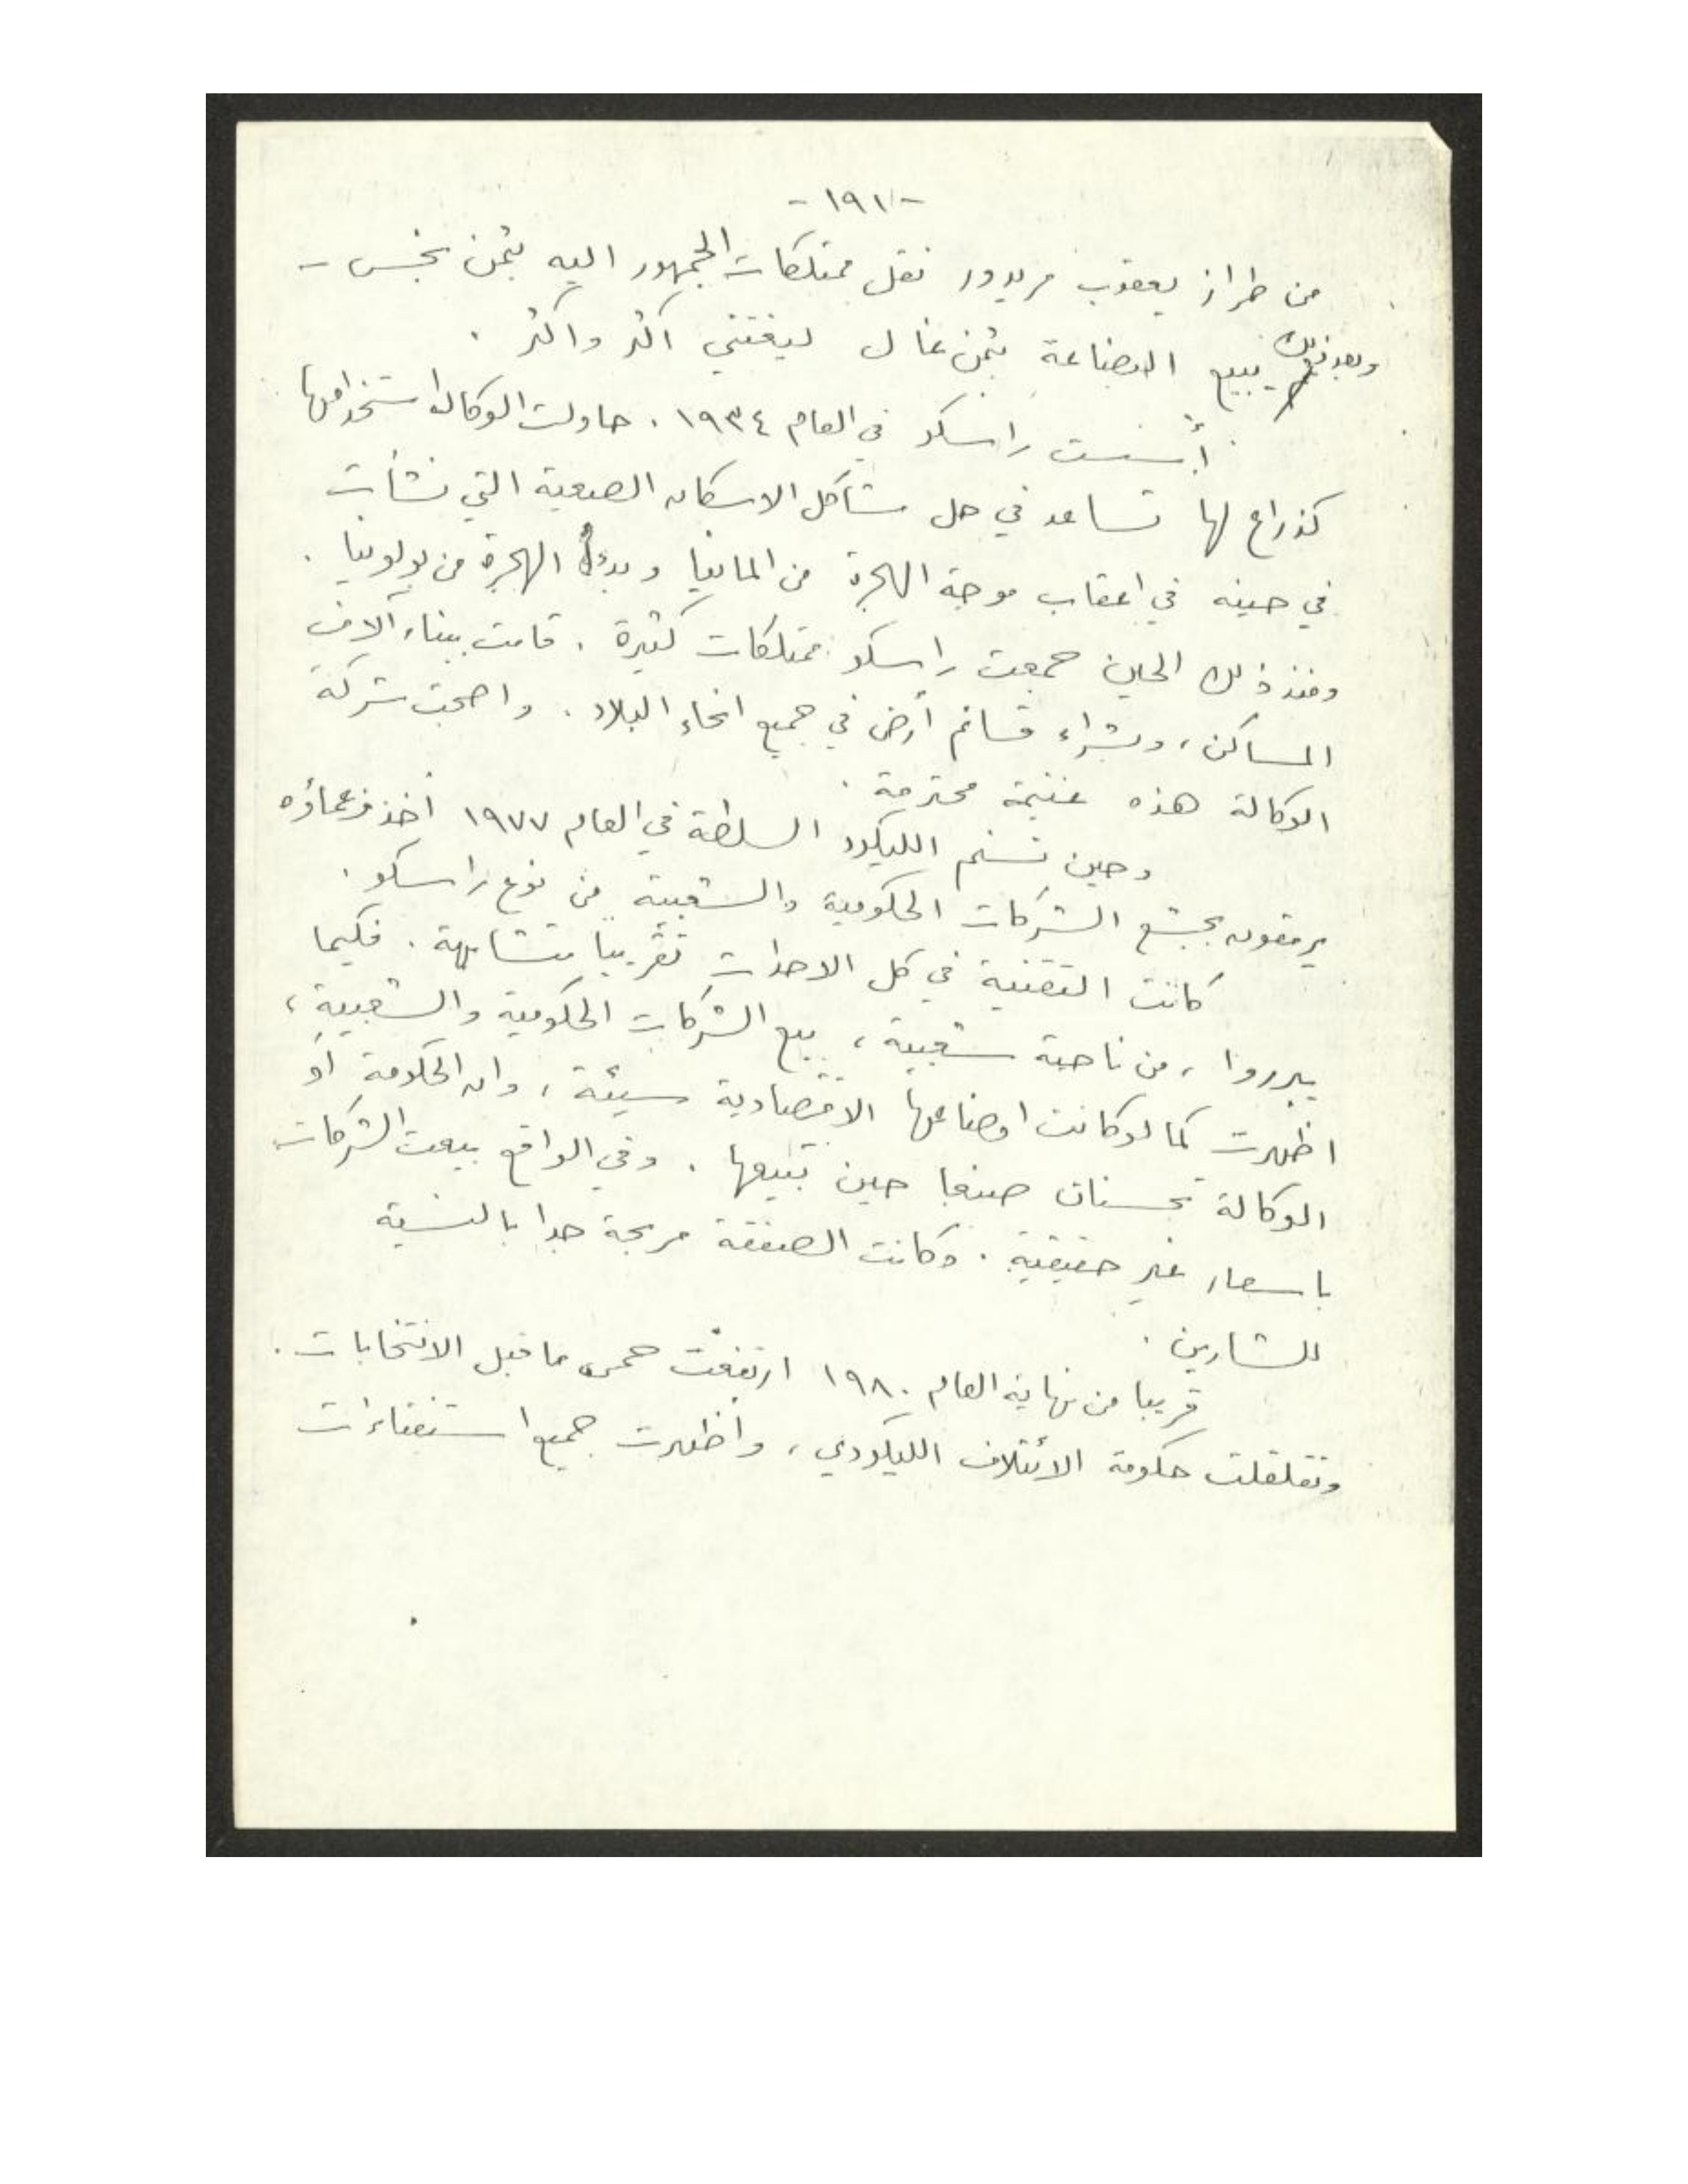 -١٩١-
من طراز يعقوب مريدور نقل ممتلكات الجمهور اليه بثمن بخس -
وبعد ذلك يبيع البضاعة بثمن غال ليغتني اكثر واكثر .
أسست راسكو في العام ١٩٣٤ . حاولت الوكالة استخدامها
كذراع لها تساعد في حل مشاكل الاسكان الصعبة التي نشأت
في حينه في اعقاب موجة الهجرة من المانيا وبدء الهجرة من بولونيا .
ومنذ ذلك الحين جمعت راسكو ممتلكات كثيرة . قامت ببناء آلاف
المساكن ، وبشراء قسائم أرض في جميع انحاء البلاد . واصبحت شركة
الوكالة هذه غنيمة محترمة .
وحين تسنم الليكود السلطة في العام ١٩٧٧ أخذ زعماؤه
يرمقون بجشع الشركات الحكومية والشعبية من نوع راسكو .
كانت التقنية في كل الاحداث تقريباً متشابهة . فكيما
يبرروا ، من ناحية شعبية ، بيع الشركات الحكومية والشعبية ،
اظهرت كما لو كانت اوضاعها الاقتصادية سيئة ، وان الحكومة أو
الوكالة تحسنان صنعا حين تبيعها . وفي الواقع بيعت الشركات
باسعار غير حقيقية . وكانت الصفقة مربحة جدا بالنسبة
للشارين .
قريبا من نهاية العام ١٩٨٠ ارتفعت حمى ما قبل الانتخابات .
وتقلقلت حكومة الائتلاف الليكودي ، وأظهرت جميع استفتاءات